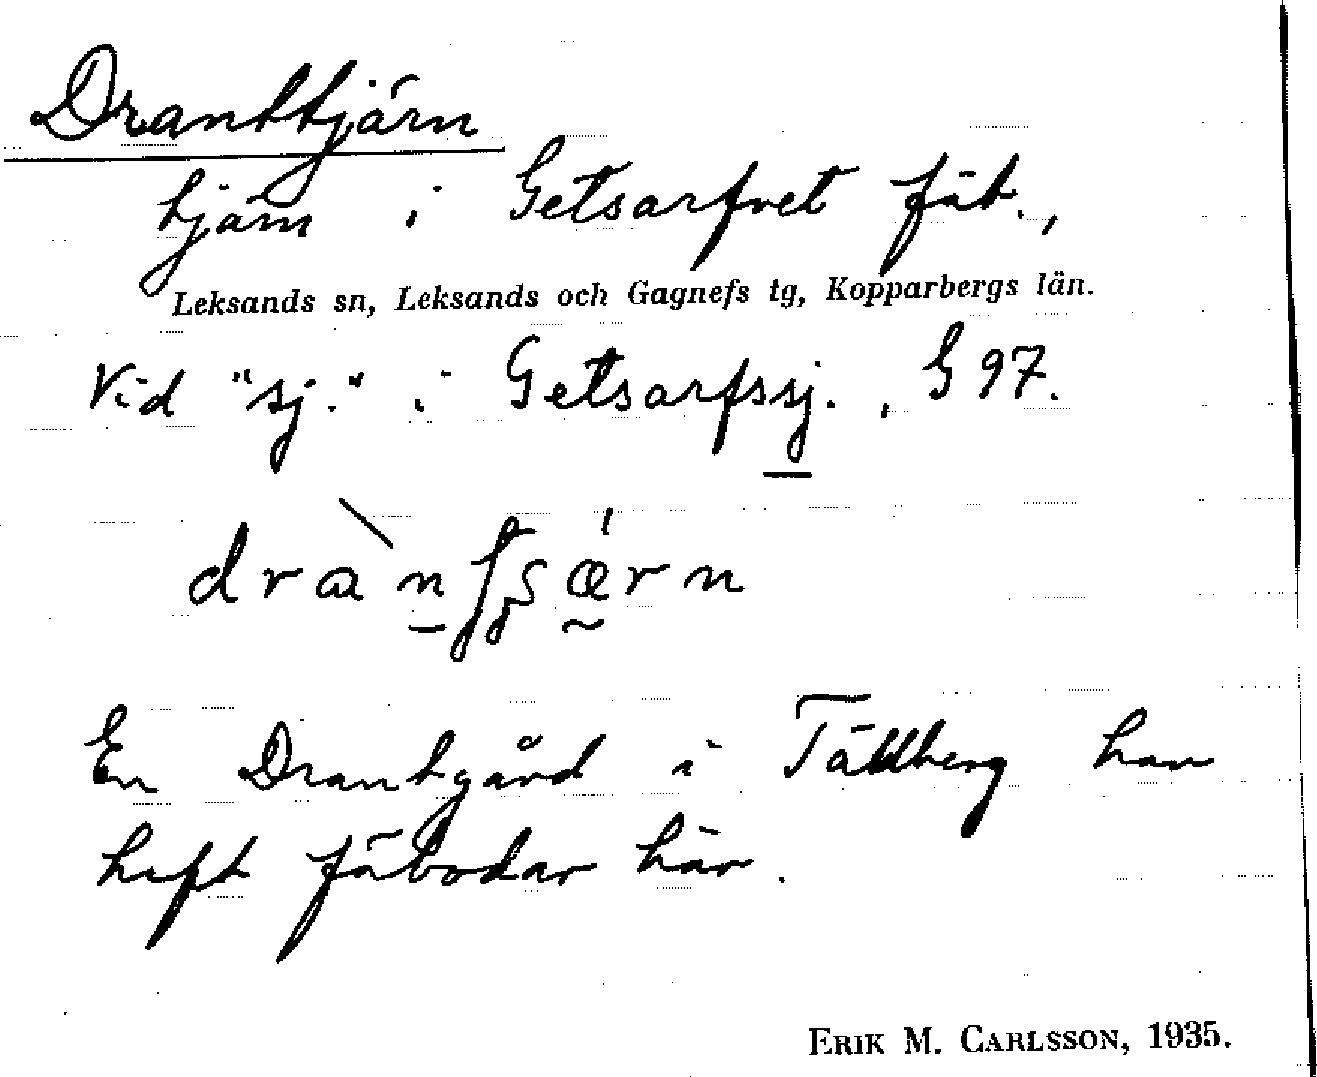 Dranttjärn
tjärn i Getsarfvet fäb.,
Leksands sn, Leksands och Gagnefs tg, Kopparbergs län.
Vid "sj." i Getsarfssj., G 97.
En Drantgård i Tällberg har
haft fäbodar här.
ERIK M. CARLSSON, 1935.